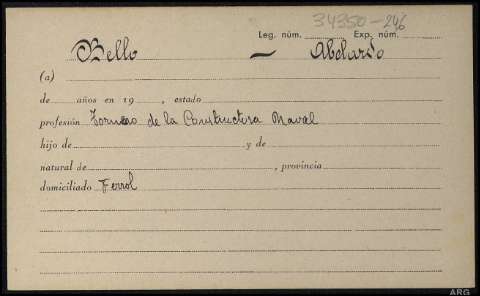 34350-246
Leg. núm. Exp. núm.
Bello — Abelardo
(a)
de años en 19 , estado
profesión Tornero de la Constructora Naval
hijo de y de
natural de , provincia
domiciliado Ferrol
ARG